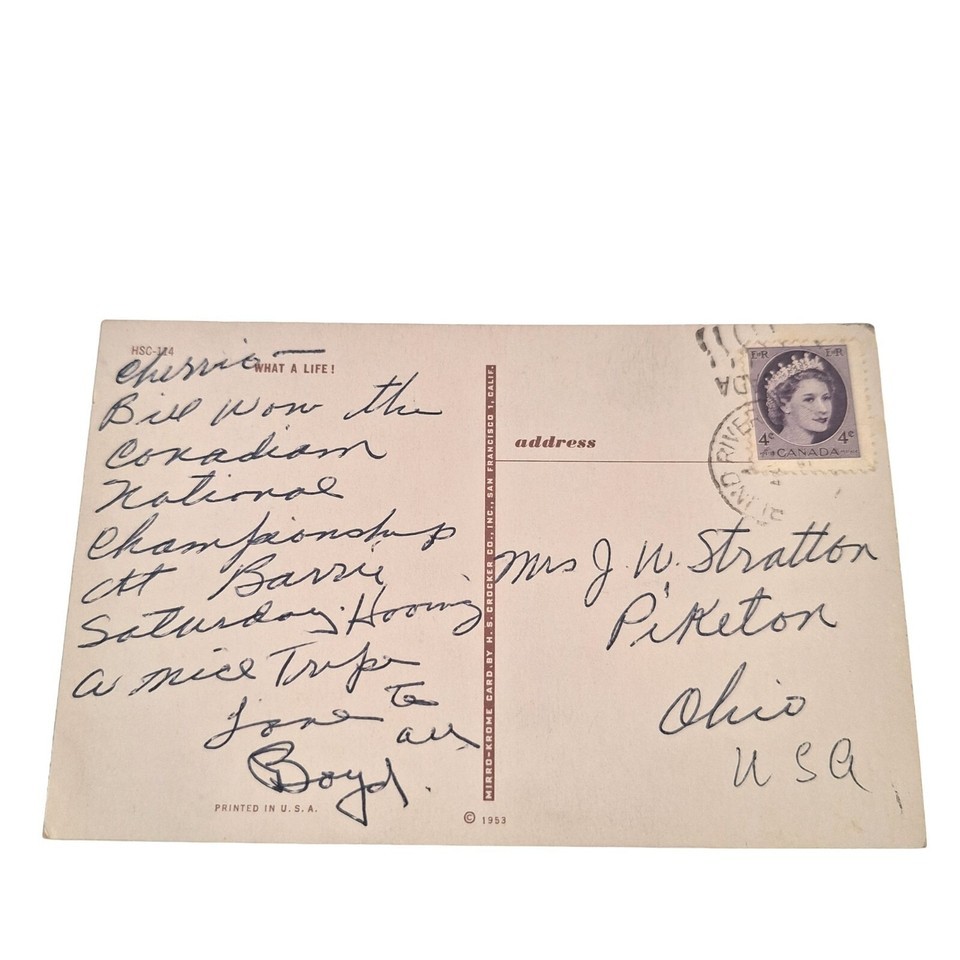 HSC-114
WHAT A LIFE!
Cherrio —
Bill Won the
Canadian
National
Championship
At Barrie
Saturday. Having
a nice Trip
Love to
all
Boyd.
PRINTED IN U.S.A.
© 1953
MIRRO-KROME CARD BY H. S. CROCKER CO., INC., SAN FRANCISCO 1, CALIF.
address
E R E R
4¢ 4¢
CANADA
BLIND RIVER
Mrs J. W. Stratton
Piketon
Ohio
U S A